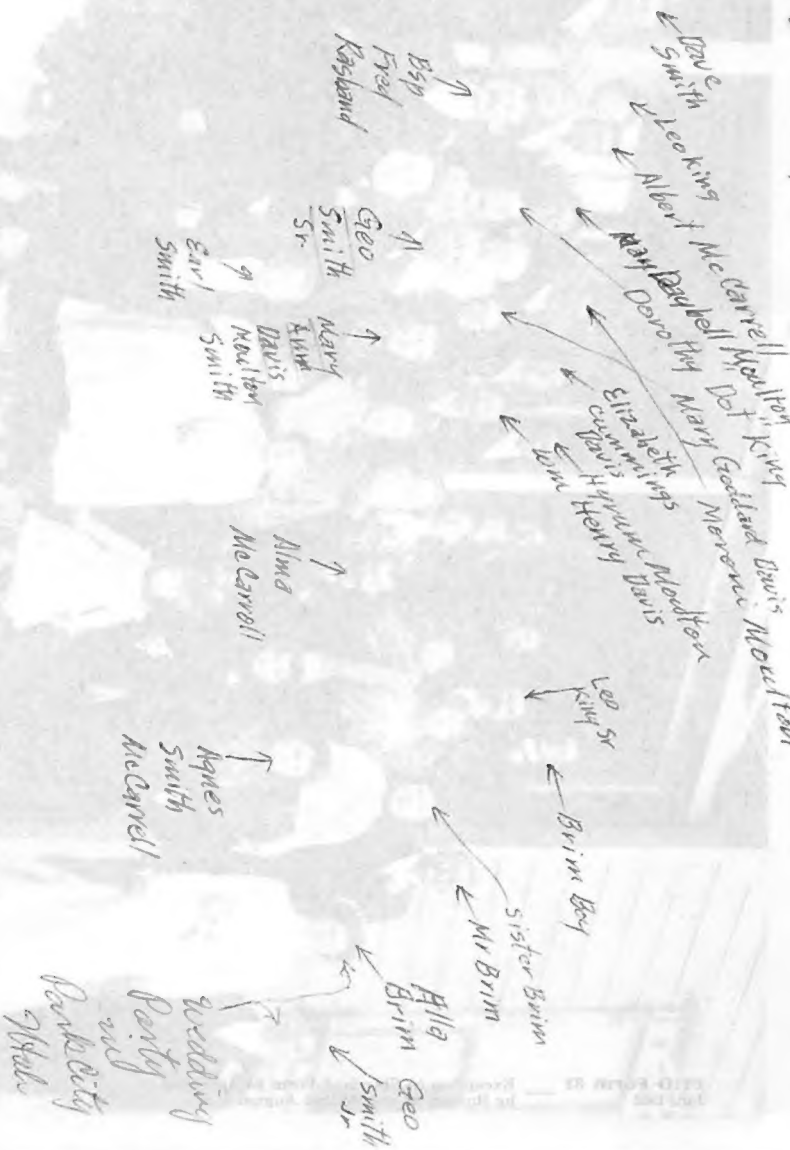 Dave
Smith
Leo King
Albert McCarrell
May Daybell Moulton
Dorothy "Dot" King
Mary Goddard Davis
Moroni Moulton
Elizabeth
Cummings
Davis
Hyrum Moulton
Wm Henry Davis
Bsp
Fred
Rasband
Geo
Smith
Sr
Earl
Smith
Mary
Ann
Davis
Moulton
Smith
Alma
McCarrell
Leo
King Sr
Brim Boy
Sister Brim
Mr Brim
Agnes
Smith
McCarrell
Alla
Brim
Geo
Smith
Jr
Wedding
Party
in
Park City
Utah